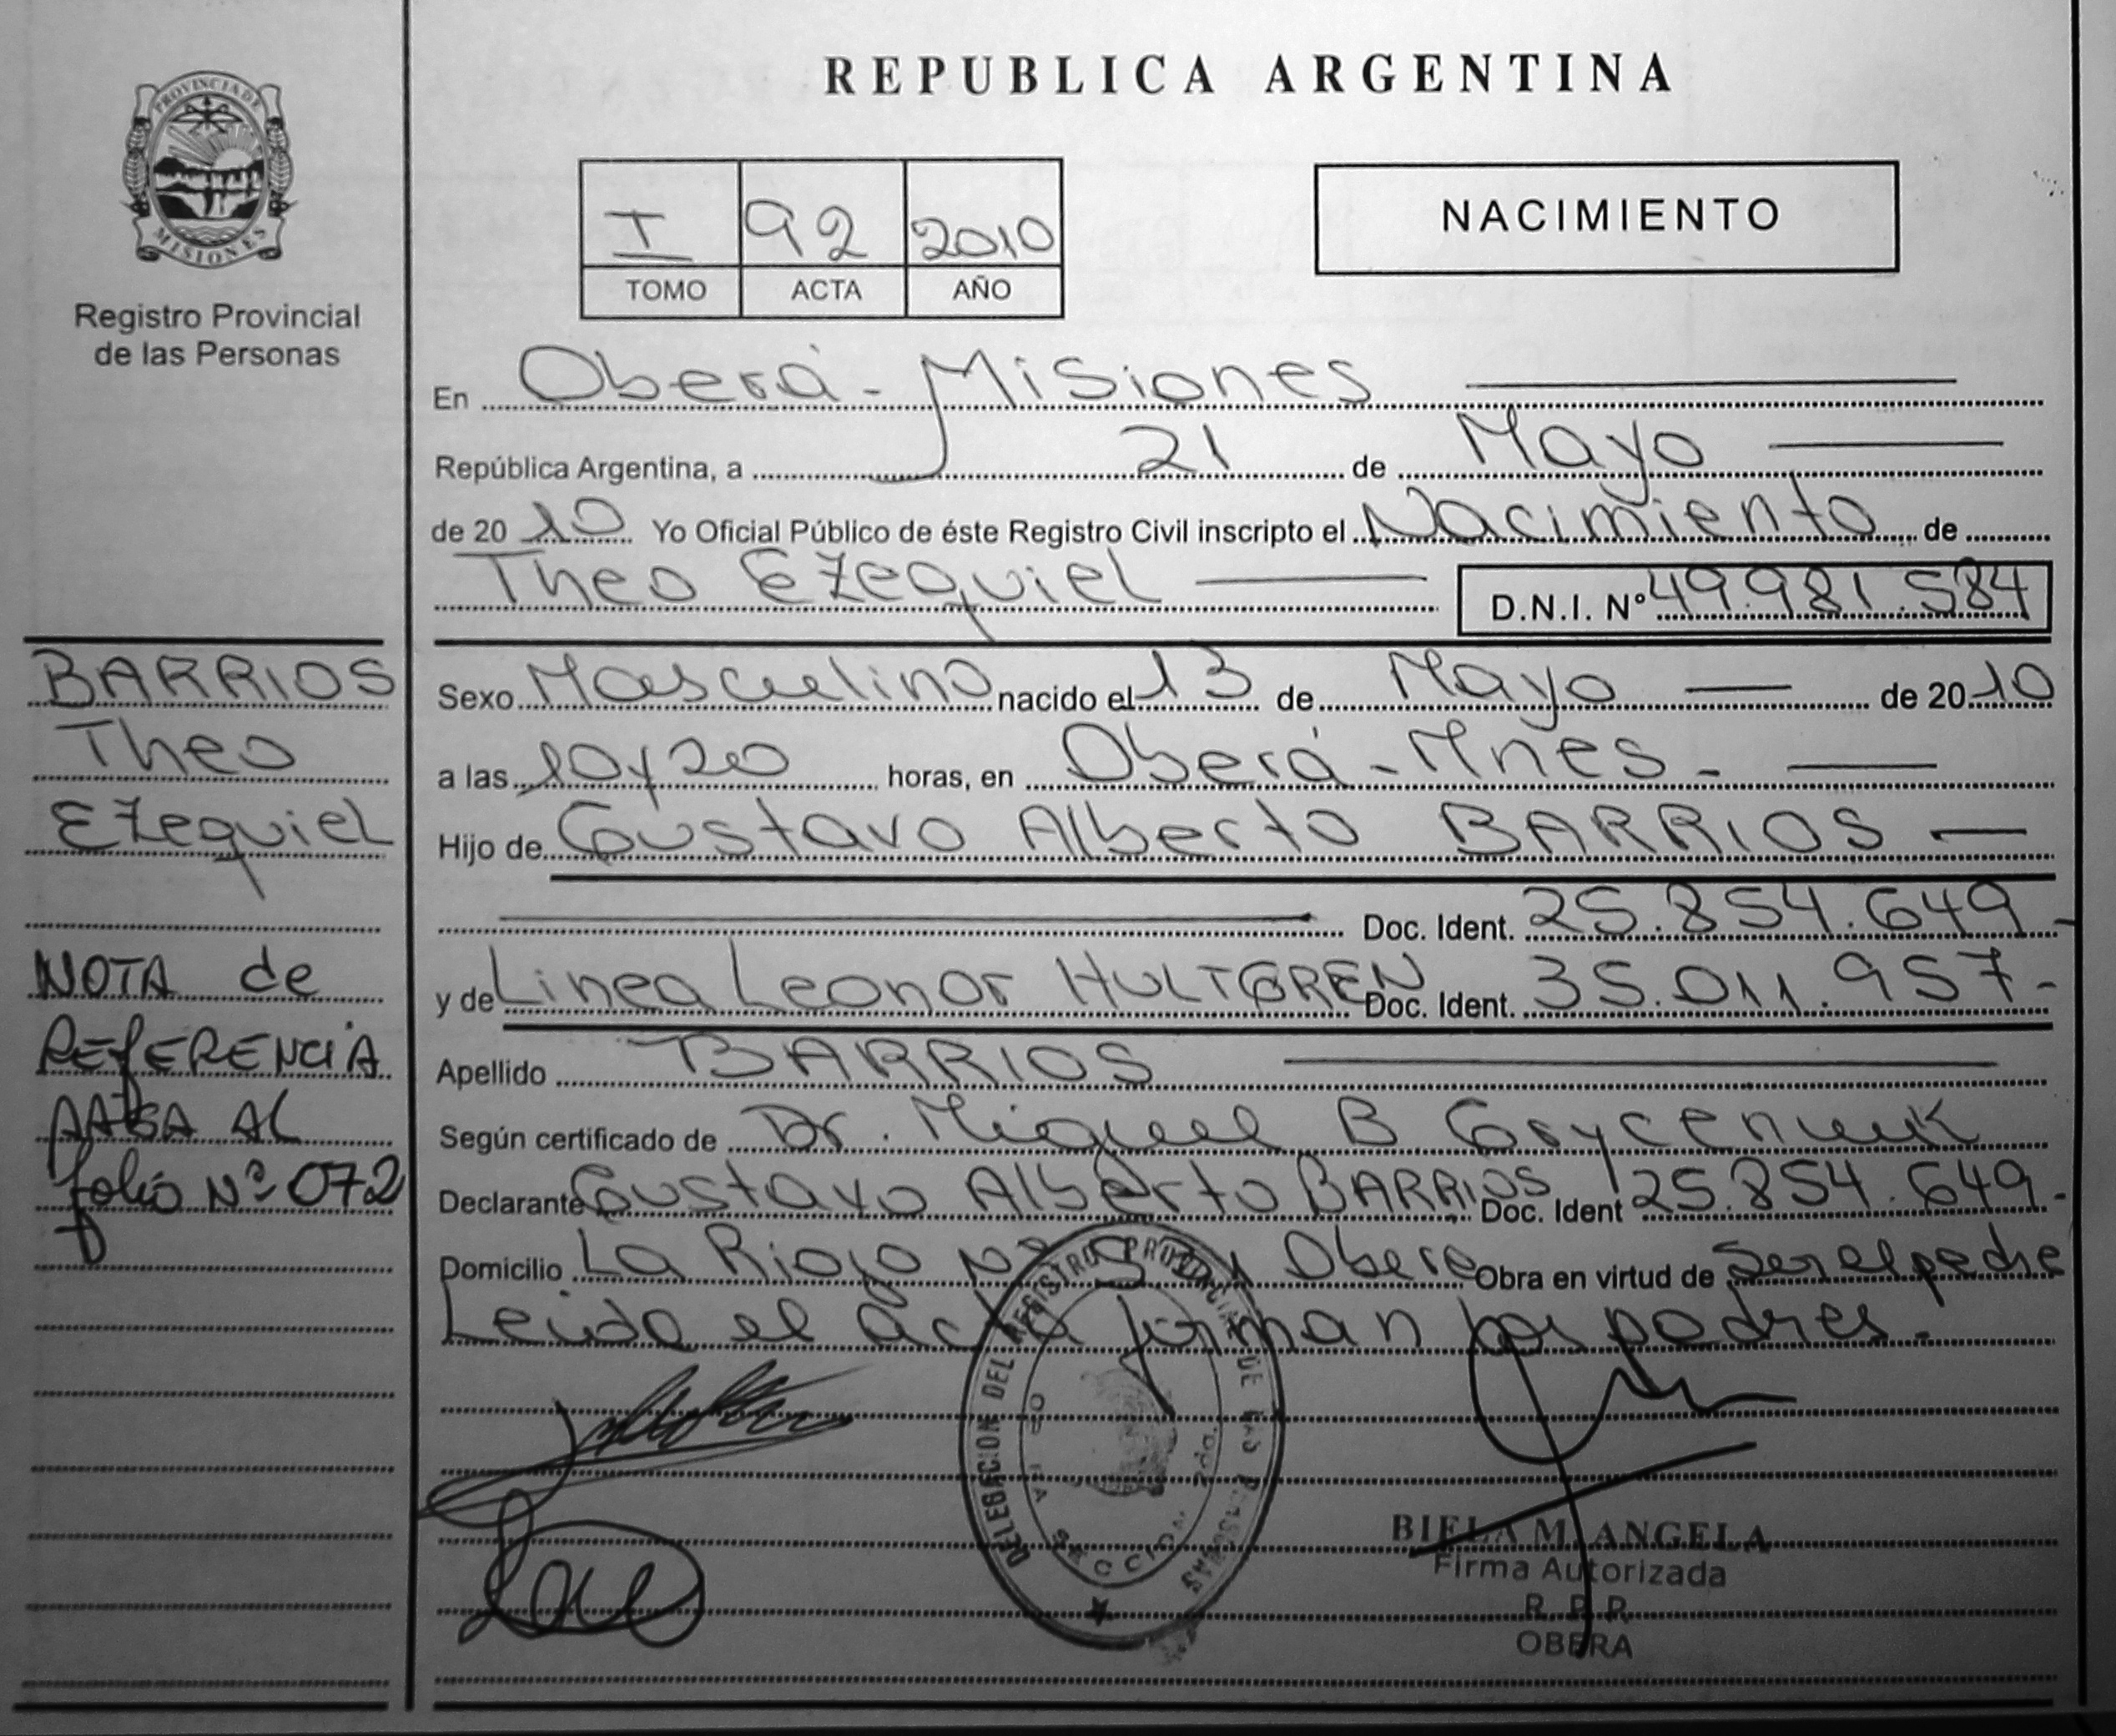 PROVINCIA DE
MISIONES
Registro Provincial
de las Personas
REPUBLICA ARGENTINA
I 92 2010
TOMO ACTA AÑO
NACIMIENTO
En Oberá - Misiones
República Argentina, a 21 de Mayo
de 20 10 Yo Oficial Público de éste Registro Civil inscripto el Nacimiento de
Theo Ezequiel D.N.I. Nº 49.981.584
Sexo Masculino nacido el 13 de Mayo de 20 10
a las 10 y 20 horas, en Oberá - Mnes -
Hijo de Gustavo Alberto BARRIOS
Doc. Ident. 25.854.649-
y de Linea Leonor HULTGREN Doc. Ident. 35.011.957-
Apellido BARRIOS
Según certificado de Dr. Miguel B
Declarante Gustavo Alberto BARRIOS Doc. Ident 25.854.649-
Domicilio La Rioja Nº Obera Obra en virtud de Ser el padre
Leida el acta firman los padres.-
BARRIOS
Theo
Ezequiel
NOTA de
REFERENCIA
PASA AL
folio Nº 072
DELEGACION DEL REGISTRO PROVINCIAL DE LAS PERSONAS
SECCION 2da.
BIELA M. ANGELA
Firma Autorizada
R. P. P.
OBERA